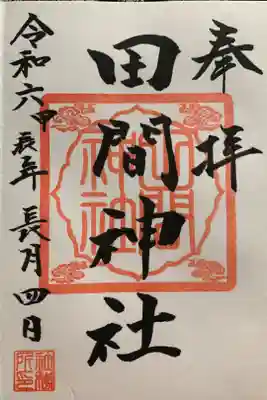 奉拝
田間神社
令和六甲辰年長月四日
田間神社